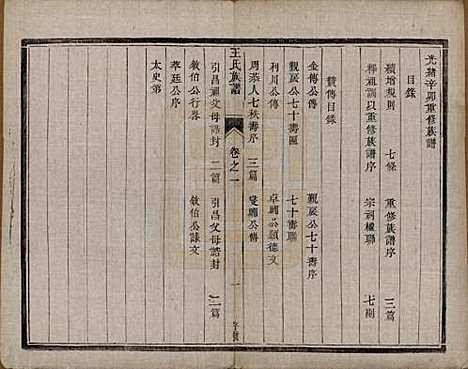 光緒辛卯重修族譜
目錄
積增規則 七條 重修族譜序 三篇
釋通訓以重修族譜序 宗祠楹聯 七副
贊傳目錄
金傳公傳 覲辰公七十壽序
覲辰公七十壽匾 七十壽聯
利川公傳 卓軒公頌德文
周恭人七秩壽序 三篇 燮卿公傳
王氏族譜 卷之一 一
引昌祖父母誥封 二篇 引昌父母誥封 二篇
敘伯公行畧 敘伯公誄文
華廷公序
太史第